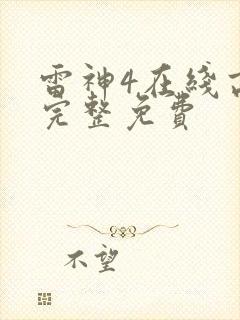 雷神4在线
完整免费
不望